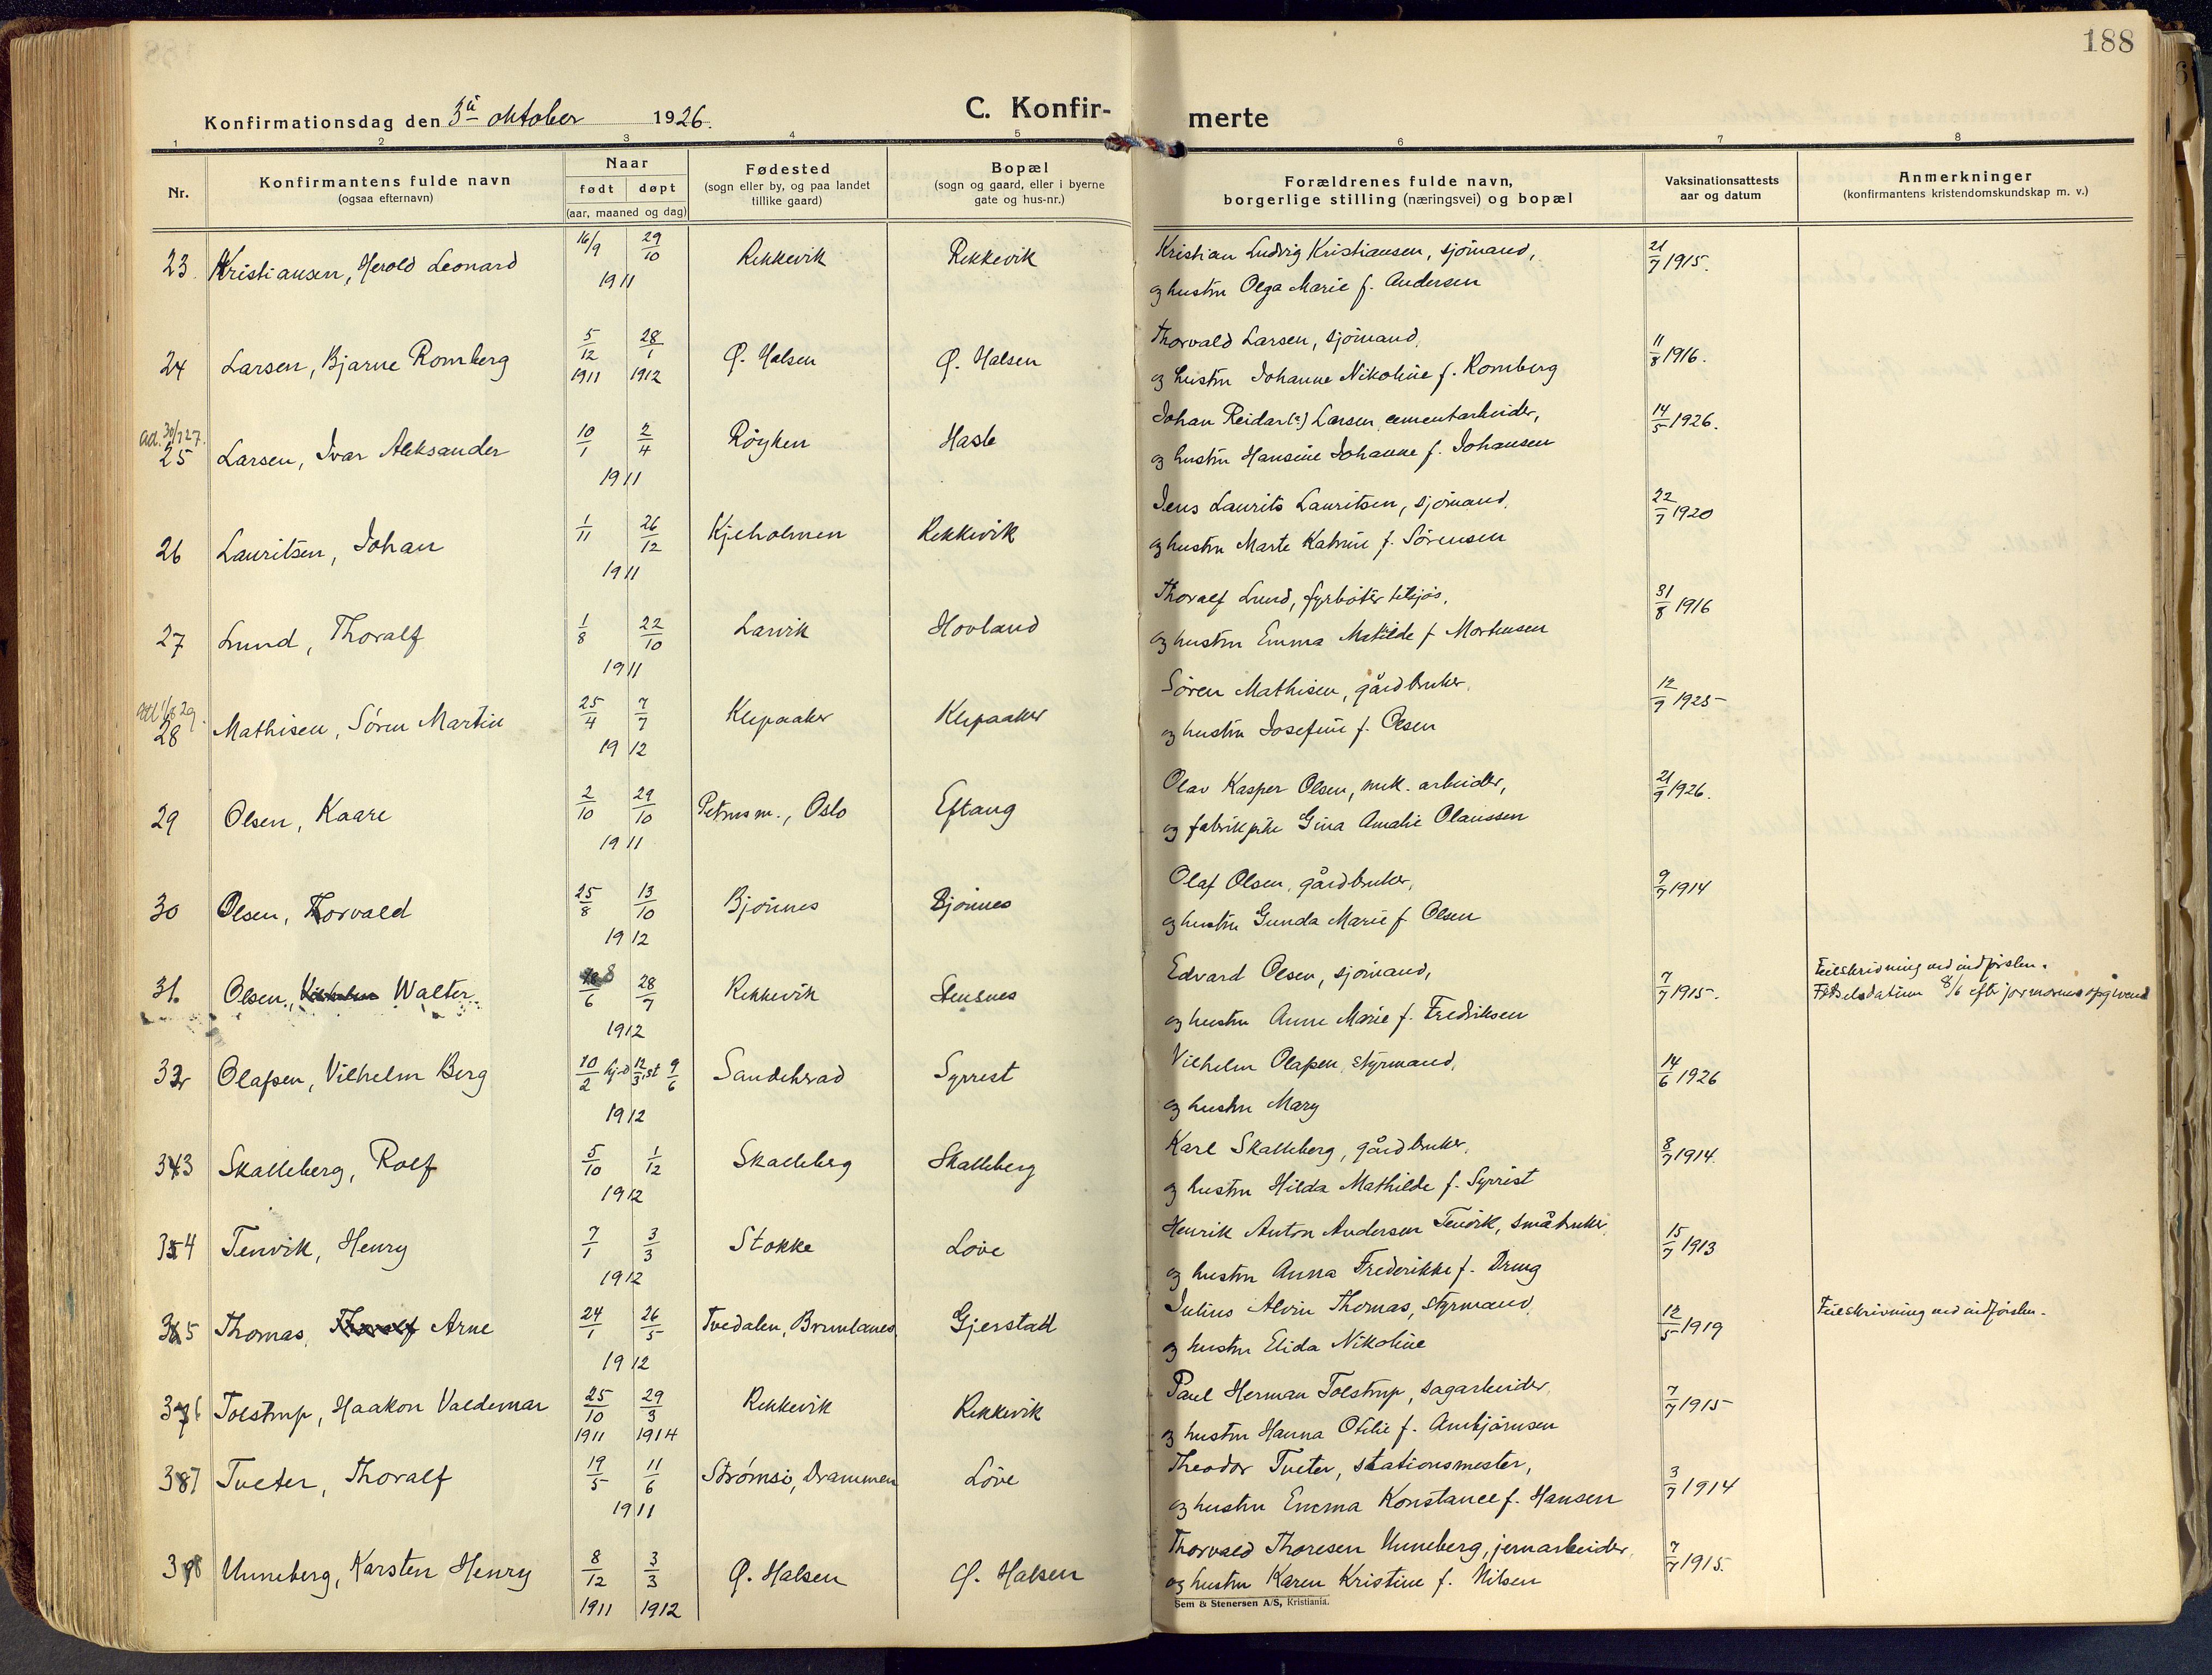 188
Konfirmationsdag den 3die oktober 1926.
C. Konfir-
merte
1 2 3 4 5 6 7 8
Nr.
Konfirmantens fulde navn
(ogsaa efternavn)
Naar
født døpt
(aar, maaned og dag)
Fødested
(sogn eller by, og paa landet
tillike gaard)
Bopæl
(sogn og gaard, eller i byerne
gate og hus-nr.)
Forældrenes fulde navn,
borgerlige stilling (næringsvei) og bopæl
Vaksinationsattests
aar og datum
Anmerkninger
(konfirmantens kristendomskundskap m. v.)
23 Kristiansen, Herold Leonard 16/9 29/10 1911 Rekkevik Rekkevik Kristian Ludvig Kristiansen, sjømand, 21/7 1915.
og hustru Olga Marie f. Andersen
24 Larsen, Bjarne Romberg 5/12 1911 28/1 1912 Ø. Halsen Ø. Halsen Thorvald Larsen, sjømand, 11/8 1916.
og hustru Johanne Nikoline f. Romberg
25 Larsen, Ivar Aleksander 10/1 2/4 1911 Røyken Hasle Johan Reidar(?) Larsen, cementarbeider, 14/5 1926.
og hustru Hansine Johanne f. Johansen
26 Lauritsen, Johan 1/11 26/12 1911 Kjeholmen Rekkevik Jens Laurits Lauritsen, sjømand, 22/7 1920
og hustru Marte Katrine f. Sørensen
27 Lund, Thoralf 1/8 22/10 1911 Larvik Hovland Thoralf Lund, fyrbøter tilsjøs, 31/8 1916
og hustru Emma Matilde f. Mortensen
28 Mathisen, Søren Martin 25/4 7/7 1912 Klepaaker Klepaaker Søren Mathisen, gårdbruker, 12/9 1925
og hustru Josefine f. Olsen
29 Olsen, Kaare 2/10 29/10 1911 Petrus m., Oslo Eftang Olav Kasper Olsen, mek. arbeider, 21/9 1926.
og fabrikpike Gina Amalie Olaussen
30 Olsen, Thorvald 25/8 13/10 1912 Bjønnes Bjønnes Olaf Olsen, gårdbruker, 9/7 1914
og hustru Gunda Marie f. Olsen
31. Olsen, Walter 8/6 28/7 1912 Rekkevik Stensnes Edvard Olsen, sjømand, 7/7 1915. Feilskrivning ved indførslen.
og hustru Anne Marie f. Fredriksen Fødselsdatum 8/6 efter jormorens opgivend
32 Olafsen, Vilhelm Berg 10/2 hj.d 12/3, st 9/6 1912 Sandeherad Syrrest Vilhelm Olafsen, styrmand, 14/6 1926
og hustru Mary
33 Skalleberg, Rolf 5/10 1/12 1912 Skalleberg Skalleberg Karl Skalleberg, gårdbruker, 8/7 1914.
og hustru Hilda Mathilde f. Syrrist
34 Tenvik, Henry 7/1 3/3 1912 Stokke Løve Henrik Anton Andersen Tenvik, småbruker, 15/7 1913
og hustru Anna Frederikke f. Dreng
35 Thomas, Thoralf Arne 24/1 26/5 1912 Tvedalen, Brunlanes Gjerstad Julius Alvin Thomas, styrmand, 12/5 1919 Feilskrivning ved indførslen.
og hustru Elida Nikoline
36 Tolstrup, Haakon Valdemar 25/10 1911 29/3 1914 Rekkevik Rekkevik Paul Herman Tolstrup, sagarbeider, 7/7 1915
og hustru Hanna Otilie f. Ambjørnsen
37 Tveter, Thoralf 19/5 11/6 1911 Strømsø, Drammen Løve Theodor Tveter, stationsmester, 3/7 1914
og hustru Emma Konstance f. Hansen
38 Unneberg, Karsten Henry 8/12 1911 3/3 1912 Ø. Halsen Ø. Halsen Thorvald Thoresen Unneberg, jernarbeider, 7/7 1915.
og hustru Karen Kristine f. Nilsen
Sem & Stenersen A/S, Kristiania.